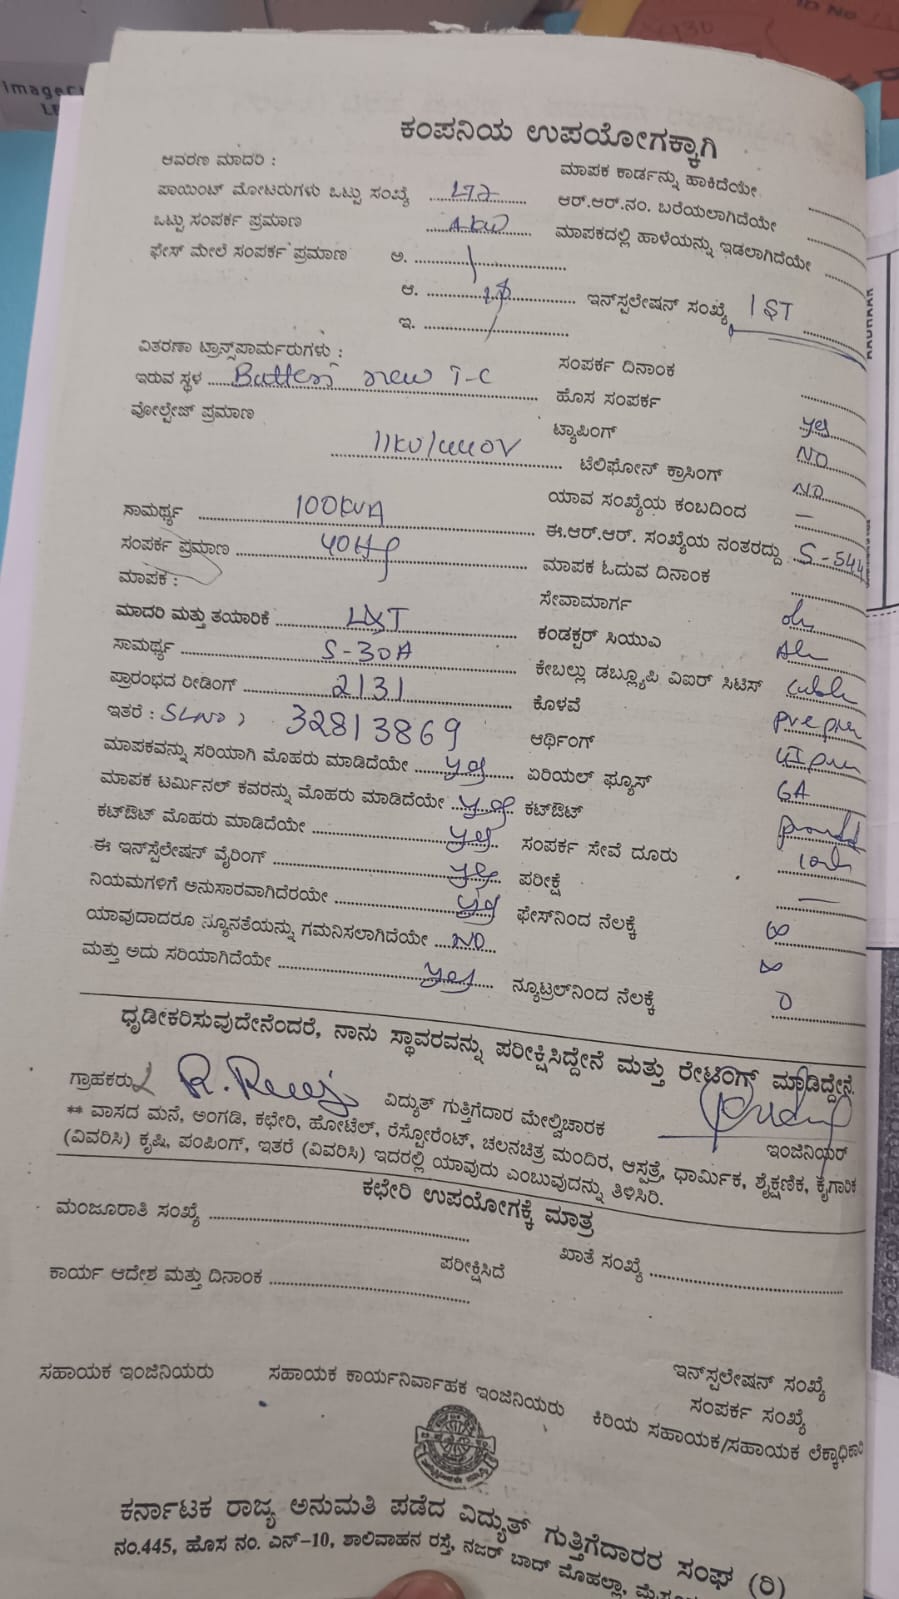 ImageC
ID No
ಕಂಪನಿಯ ಉಪಯೋಗಕ್ಕಾಗಿ
ಆವರಣ ಮಾದರಿ : ಮಾಪಕ ಕಾರ್ಡನ್ನು ಹಾಕಿದೆಯೇ
ಪಾಯಿಂಟ್ ಮೋಟರುಗಳು ಒಟ್ಟು ಸಂಖ್ಯೆ ಆರ್.ಆರ್.ನಂ. ಬರೆಯಲಾಗಿದೆಯೇ
ಒಟ್ಟು ಸಂಪರ್ಕ ಪ್ರಮಾಣ ಮಾಪಕದಲ್ಲಿ ಹಾಳೆಯನ್ನು ಇಡಲಾಗಿದೆಯೇ
ಫೇಸ್ ಮೇಲೆ ಸಂಪರ್ಕ ಪ್ರಮಾಣ ಅ.
ಆ. ಇನ್‌ಸ್ಪಲೇಷನ್ ಸಂಖ್ಯೆ IST
ಇ.
ವಿತರಣಾ ಟ್ರಾನ್ಸ್‌ಪಾರ್ಮರುಗಳು : ಸಂಪರ್ಕ ದಿನಾಂಕ
ಇರುವ ಸ್ಥಳ new T-C ಹೊಸ ಸಂಪರ್ಕ yes
ವೋಲ್ಟೇಜ್ ಪ್ರಮಾಣ 11KV/440V ಟ್ಯಾಪಿಂಗ್ NO
ಟೆಲಿಫೋನ್ ಕ್ರಾಸಿಂಗ್ NO
ಸಾಮರ್ಥ್ಯ 100KVA ಯಾವ ಸಂಖ್ಯೆಯ ಕಂಬದಿಂದ —
ಸಂಪರ್ಕ ಪ್ರಮಾಣ 40HP ಈ.ಆರ್.ಆರ್. ಸಂಖ್ಯೆಯ ನಂತರದ್ದು S-544
ಮಾಪಕ : ಮಾಪಕ ಓದುವ ದಿನಾಂಕ
ಮಾದರಿ ಮತ್ತು ತಯಾರಿಕೆ L&T ಸೇವಾಮಾರ್ಗ
ಸಾಮರ್ಥ್ಯ 5-30A ಕಂಡಕ್ಟರ್ ಸಿಯುಎ
ಪ್ರಾರಂಭದ ರೀಡಿಂಗ್ 2131 ಕೇಬಲ್ಲು ಡಬ್ಲ್ಯೂಪಿ ವಿಐರ್ ಸಿಟಿಸ್ cable
ಇತರೆ : SLNO: 32813869 ಕೊಳವೆ
ಆರ್ಥಿಂಗ್
ಮಾಪಕವನ್ನು ಸರಿಯಾಗಿ ಮೊಹರು ಮಾಡಿದೆಯೇ yes ಏರಿಯಲ್ ಫ್ಯೂಸ್
ಮಾಪಕ ಟರ್ಮಿನಲ್ ಕವರನ್ನು ಮೊಹರು ಮಾಡಿದೆಯೇ yes ಕಟ್‌ಔಟ್
ಕಟ್‌ಔಟ್ ಮೊಹರು ಮಾಡಿದೆಯೇ yes ಸಂಪರ್ಕ ಸೇವೆ ದೂರು
ಈ ಇನ್‌ಸ್ಪೆಲೇಷನ್ ವೈರಿಂಗ್ yes ಪರೀಕ್ಷೆ —
ನಿಯಮಗಳಿಗೆ ಅನುಸಾರವಾಗಿದೆರಯೇ yes ಫೇಸ್‌ನಿಂದ ನೆಲಕ್ಕೆ ∞
ಯಾವುದಾದರೂ ನ್ಯೂನತೆಯನ್ನು ಗಮನಿಸಲಾಗಿದೆಯೇ NO ∞
ಮತ್ತು ಅದು ಸರಿಯಾಗಿದೆಯೇ yes ನ್ಯೂಟ್ರಲ್‌ನಿಂದ ನೆಲಕ್ಕೆ 0
ಧೃಡೀಕರಿಸುವುದೇನೆಂದರೆ, ನಾನು ಸ್ಥಾವರವನ್ನು ಪರೀಕ್ಷಿಸಿದ್ದೇನೆ ಮತ್ತು ರೇಟಿಂಗ್ ಮಾಡಿದ್ದೇನೆ.
ಗ್ರಾಹಕರು ವಿದ್ಯುತ್ ಗುತ್ತಿಗೆದಾರ ಮೇಲ್ವಿಚಾರಕ ಇಂಜಿನಿಯರ್
** ವಾಸದ ಮನೆ, ಅಂಗಡಿ, ಕಛೇರಿ, ಹೋಟೆಲ್, ರೆಸ್ಟೋರೆಂಟ್, ಚಲನಚಿತ್ರ ಮಂದಿರ, ಆಸ್ಪತ್ರೆ, ಧಾರ್ಮಿಕ, ಶೈಕ್ಷಣಿಕ, ಕೈಗಾರಿಕ
(ವಿವರಿಸಿ) ಕೃಷಿ, ಪಂಪಿಂಗ್, ಇತರೆ (ವಿವರಿಸಿ) ಇದರಲ್ಲಿ ಯಾವುದು ಎಂಬುವುದನ್ನು ತಿಳಿಸಿರಿ.
ಕಛೇರಿ ಉಪಯೋಗಕ್ಕೆ ಮಾತ್ರ
ಮಂಜೂರಾತಿ ಸಂಖ್ಯೆ ಖಾತೆ ಸಂಖ್ಯೆ
ಪರೀಕ್ಷಿಸಿದೆ
ಕಾರ್ಯ ಆದೇಶ ಮತ್ತು ದಿನಾಂಕ
ಇನ್‌ಸ್ಪಲೇಷನ್ ಸಂಖ್ಯೆ
ಸಂಪರ್ಕ ಸಂಖ್ಯೆ
ಸಹಾಯಕ ಇಂಜಿನಿಯರು ಸಹಾಯಕ ಕಾರ್ಯನಿರ್ವಾಹಕ ಇಂಜಿನಿಯರು ಕಿರಿಯ ಸಹಾಯಕ/ಸಹಾಯಕ ಲೆಕ್ಕಾಧಿಕಾರಿ
ಕರ್ನಾಟಕ ರಾಜ್ಯ ಅನುಮತಿ ಪಡೆದ ವಿದ್ಯುತ್ ಗುತ್ತಿಗೆದಾರರ ಸಂಘ (ರಿ)
ನಂ.445, ಹೊಸ ನಂ. ಎನ್-10, ಶಾಲಿವಾಹನ ರಸ್ತೆ, ನಜರ್ ಬಾದ್ ಮೊಹಲ್ಲಾ,